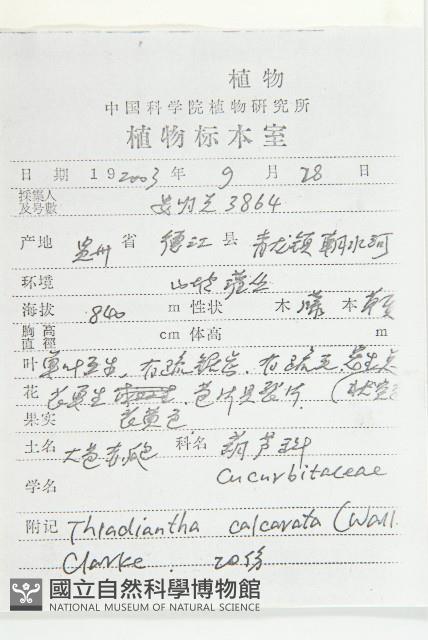 植物
中国科学院植物研究所
植物标本室
日 期 19 2003 年 9 月 28 日
採集人
及号數 3864
产地 贵州 省 德江 县 青龙镇 朝水河
环境 山坡灌丛
海拔 840 m 性状 木 藤 本 草质
胸高
直徑 cm 体高 m
叶 单叶互生,有疏锯齿,
花 苞片具裂片.
果实 黄色
土名 大苞赤瓟 科名 葫芦科
学名 Cucurbitaceae
附记 Thladiantha calcarata (Wall.
Clarke. 20份
國立自然科學博物館
NATIONAL MUSEUM OF NATURAL SCIENCE